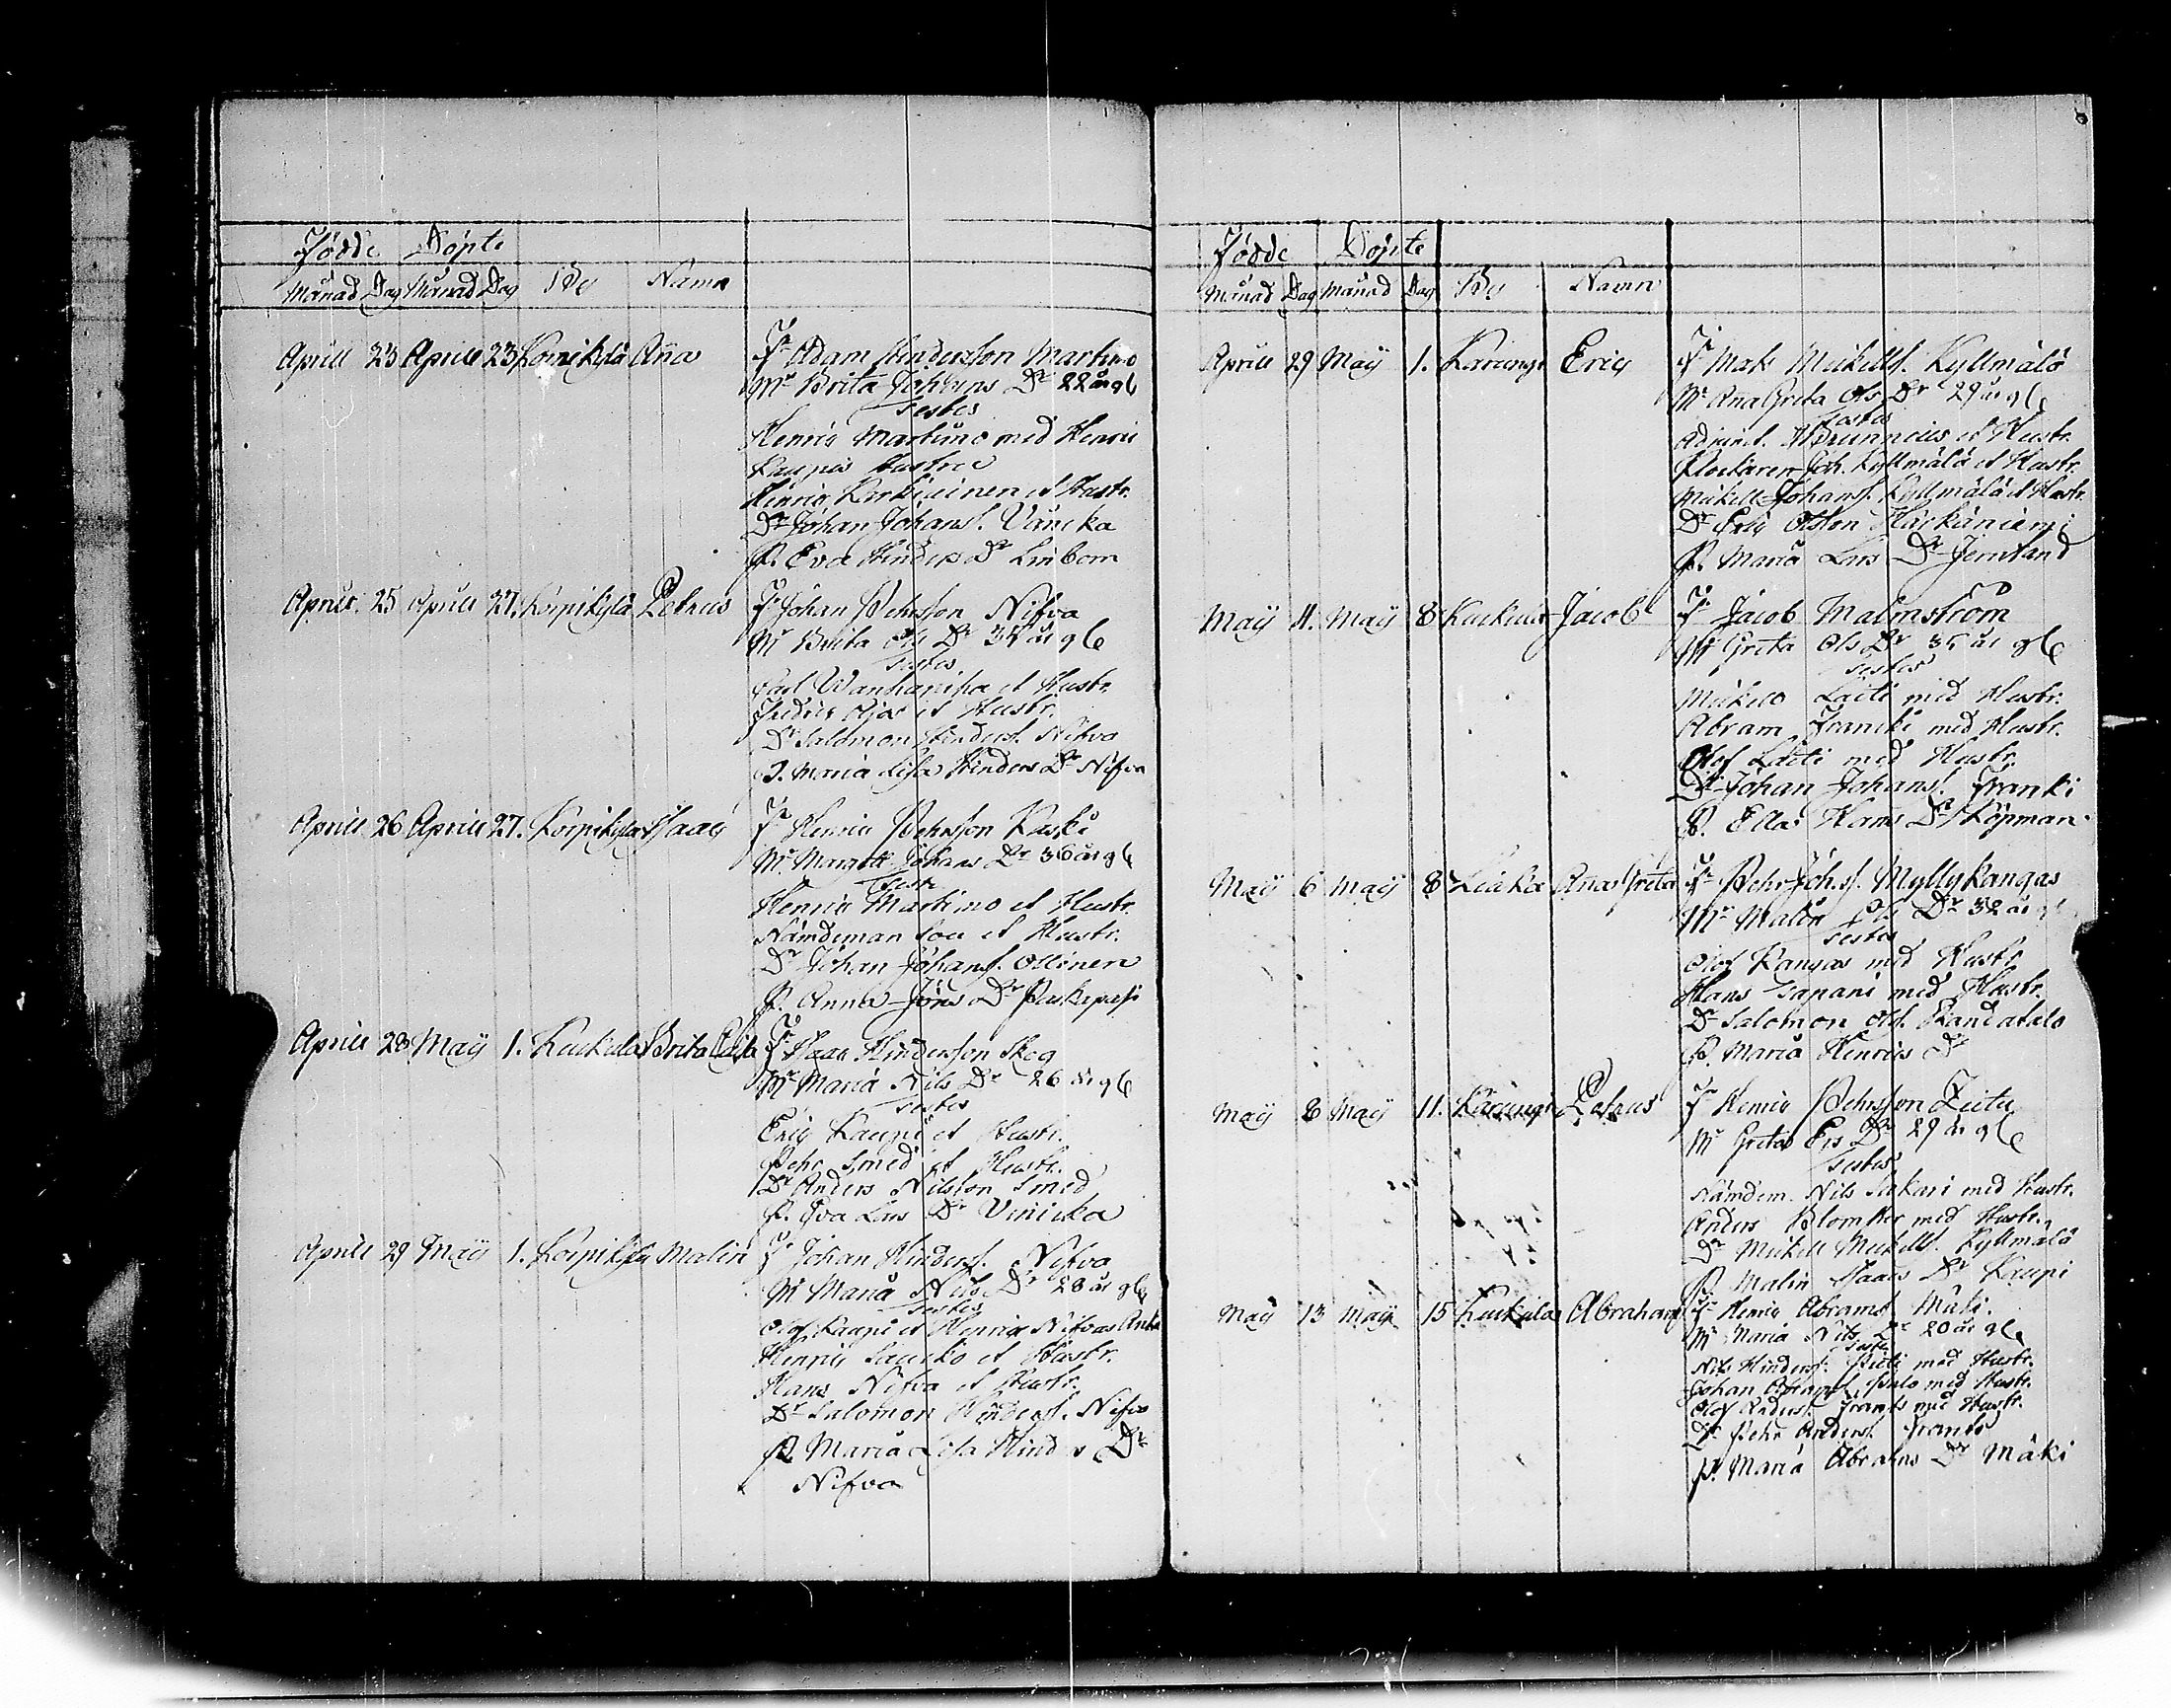 Födde Döpte
Månad Dag Månad Dag By Namn
Aprill 23 Aprill 23 Korpikylä Aña Fr Adam Hindersson Martimo
Mr Brita Johans Dr 22 år gl
Testes
Henric Martimo med Henric
Kaupis Hustru
Henric Karkiainen et Hustr.
Dr Johan Johans. Vauska
P. Eva Hinders Dr Linbom
Aprill 25 Aprill 27. Korpikylä Petrus Fr Johan Pehrsson Nifva
Mr Brita Ols Dr 34 år gl
Testes
Carl Wanhanipa et Hustr.
Fredric Ojas et Hustr.
Dr Salomon Hinders. Nifva
P. Maria Lisa Hinders Dr Nifva
Aprill 26 Aprill 27. Korpikyla Isaac Fr Henric Pehrsson Kaski
Mr Margeta Johans Dr 36 år gl
Teste
Henric Martimo et Hustr.
Nämdeman et Hustr.
Dr Johan Johans. Ollinen
P. Anna Jöns Dr
Aprill 28 May 1. Kuckula Brita Cajsa Fr Isaac Hindersson Skog
Mr Maria Nils Dr 26 år gl
Testes
Eric Kaupi et Hustr.
Pehr Smed et Hustr.
Dr Anders Nilsson Smed
P. Eva Lars Dr Vinicka
Aprill 29 May 1. Korpikyla Malin Fr Johan Hinders. Nifva
Mr Maria Nils Dr 28 år gl
Testes
Olof Kaupi et Henric Nifvas Enka
Henric Laurko et Hustr.
Hans Nifva et Hustr.
Dr Salomon Hinders. Nifva
P. Maria Lisa Hind s Dr
Nifva
Födde Döpte
Månad Dag Månad Dag By Namn
Aprill 29 May 1. Karungi Eric Fr Mats Mickells. Kyllmälä
Mr Ana Greta Ols Dr 29 år gl
Testes
Adjunct. Brunnius et Hustr.
Klockaren Joh. Kyllmälä et Hustr.
Mickell Johans. Kyllmälä et Hustr.
Dr Eric Olsson Harkäniemi
P. Maria Lars Dr Jernland
May 4. May 8 Kuckula Jacob Fr Jacob Malmström
Mr Greta Ols Dr 35 år gl
Testes
Mickel Laiti med Hustr.
Abram Francki med Hustr.
Olof Laiti med Hustr.
Dr Johan Johans. Franki
P. Ella Hans Dr Köpman
May 6 May 8 Liaka Ana Greta Fr Pehr Johs. Myllykangas
Mr Malin Ols Dr 32 år gl
Testes
Olof Kangas med Hustr
Hans Tapani med Hustr.
Dr Salomon Ols. Randatalo
P. Maria Henrics Dr
May 8 May 11. Karungi Petrus Fr Henric Pehrsson Zietu
Mr Greta Ers Dr 29 år gl
Testes
Nämdem. Nils Sukari med Hustr.
Anders Blomster med Hustr.
Dr Mickell Mickells. Kyllmälä
P. Malin Isaacs Dr Kaupi
May 13 May 15 Kuckula Abraham Fr Henric Abrams. Mäki.
Mr Maria Nils Dr 20 år gl
Teste
Nils Hinders. Pieti med Hustr.
Johan Abrams. Palo med Hustr.
Olof Anders. Franki med Hustr.
Dr Pehr Anders. Franki
P. Maria Abrahms Dr Mäki